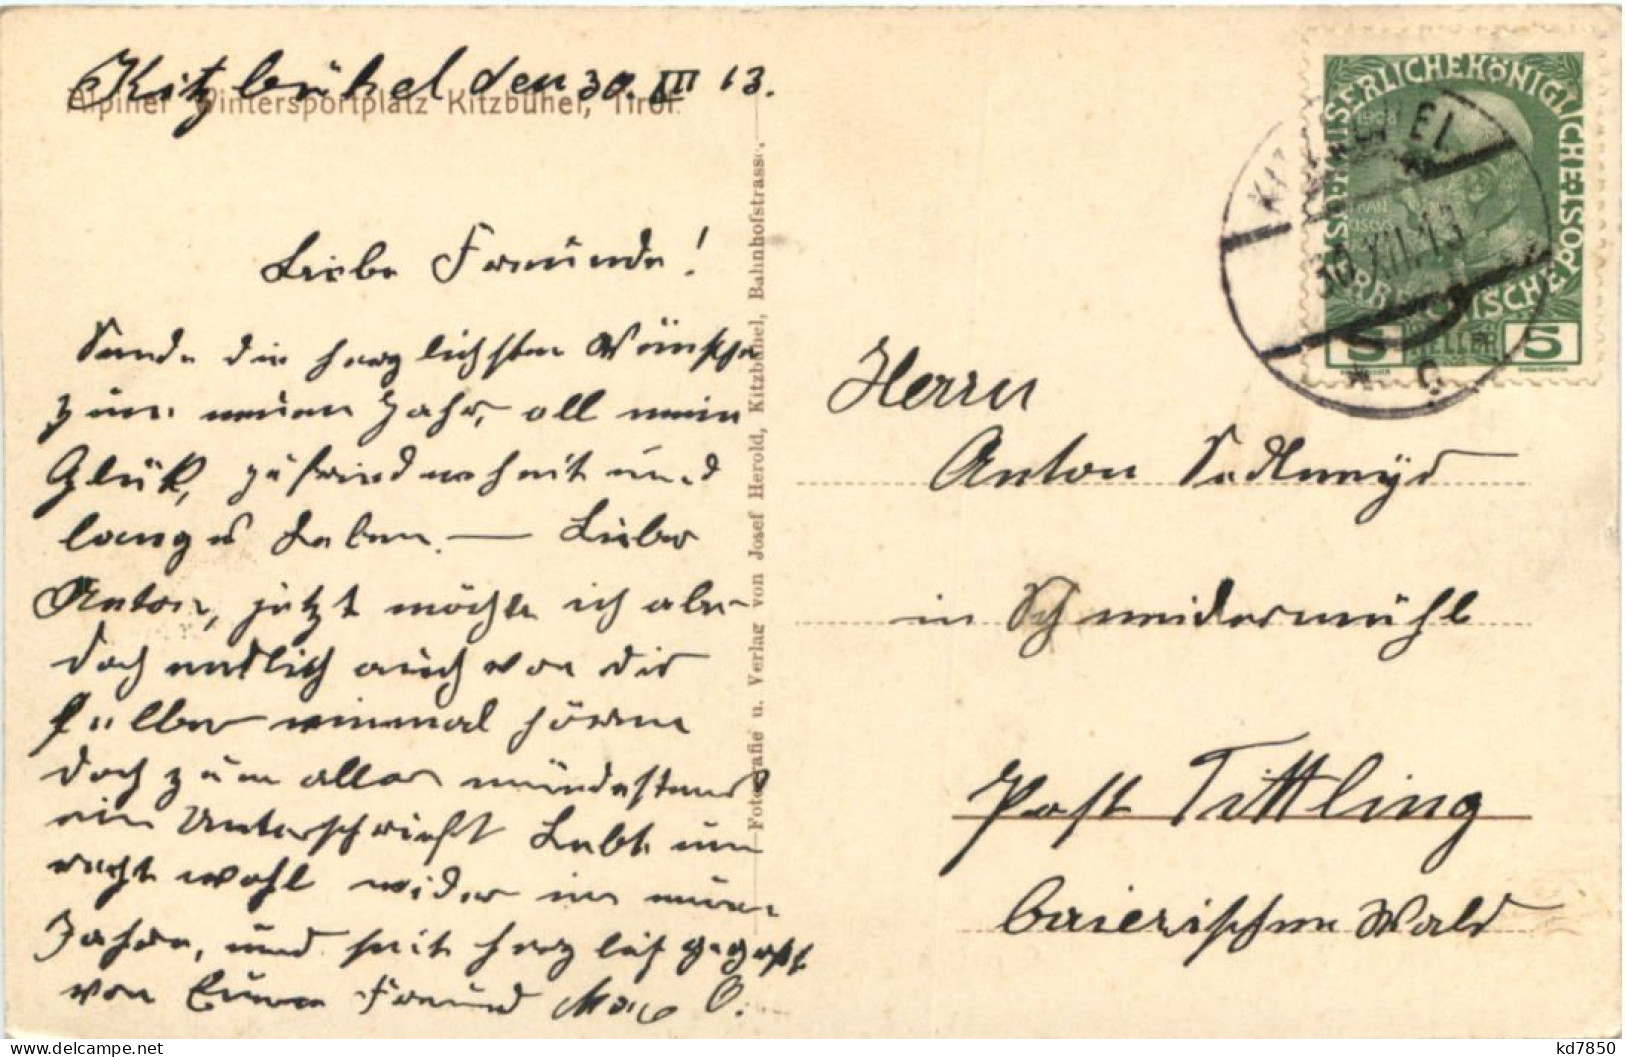 Kitzbühel den 30. XII 13.
Alpiner Wintersportplatz Kitzbühel, Tirol
Liebe Freunde!
Sende die herzlichsten Wünsche
zum neuen Jahr, all mein
Glük, zufriedenheit und
langes Leben. — Lieber
Anton, jetzt möchte ich aber
doch endlich auch von dir
selber einmal hören
doch zum aller mündestens
ein Unterschrieft Lebt nun
recht wohl wider im neuen
Jahre, und seit herzlich gegrüßt
von Euren Freund Max O.
Fotografie u. Verlag von Josef Herold, Kitzbühel, Bahnhofstrasse.
KAISERLICHE KÖNIGLICHE ÖSTERREICHISCHE POST
1908
FRANZ
5 HELLER 5
KITZBÜHEL
30.XII.13
* c
Herrn
Anton Sedlmeyr
in Schneidermühle
Post Tittling
baierischen Wald
kd7850